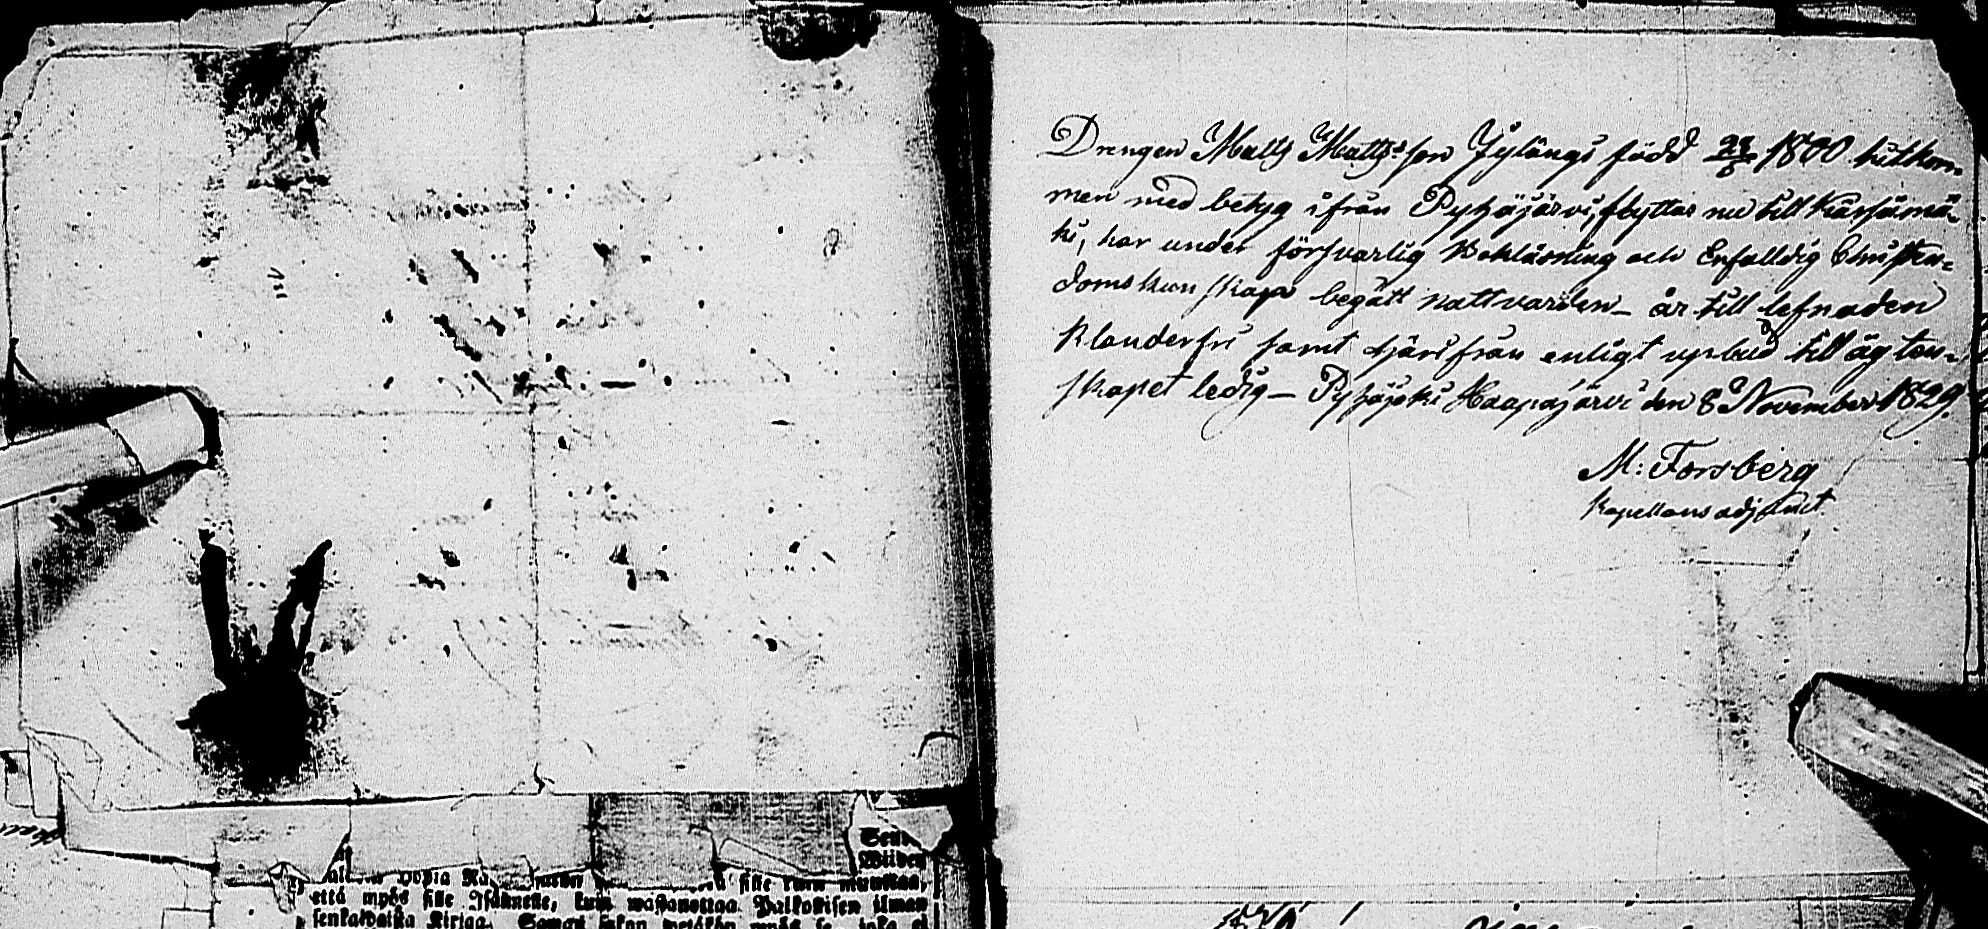 Drengen Matts Matts son Jylängi född 23/6 1800 hitkom-
men med betyg ifrån Pyhäjärvi, flyttar nu till Kärsämä-
ki, har under försvarlig Bokläsning och Enfalldig Christen-
doms kunskap begått nattvarden - är till lefnaden
klanderfri samt härifrån enligt upbud till ägten-
skapet ledig - Pyhäjoki Haapajärvi den 8 November 1829.
M: Forsberg
Kapellans adjunct
että myös sille Isännelle, kuin wastanottaa Palkollisen ilman